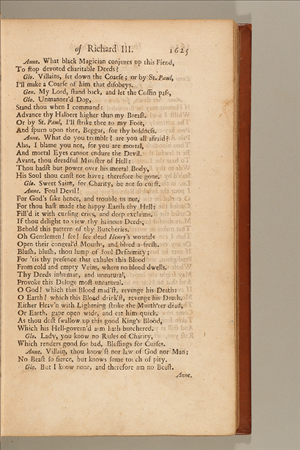 of Richard III. 1625
Anne. What black Magician conjures up this Fiend,
To stop devoted charitable Deeds?
Glo. Villains, set down the Coarse; or by St. Paul,
I'll make a Coarse of him that disobeys.
Gen. My Lord, stand back, and let the Coffin pass.
Glo. Unmanner'd Dog,
Stand thou when I command:
Advance thy Halbert higher than my Breast,
Or by St. Paul, I'll strike thee to my Foot,
And spurn upon thee, Beggar, for thy boldness.
Anne. What do you tremble? are you all afraid?
Alas, I blame you not, for you are mortal,
And mortal Eyes cannot endure the Devil.
Avant, thou dreadful Minister of Hell;
Thou hadst but power over his mortal Body,
His Soul thou canst not have; therefore be gone.
Glo. Sweet Saint, for Charity, be not so curst.
Anne. Foul Devil!
For God's sake hence, and trouble us not,
For thou hast made the happy Earth thy Hell:
Fill'd it with cursing cries, and deep exclaims.
If thou delight to view thy hainous Deeds,
Behold this pattern of thy Butcheries.
Oh Gentlemen! see! see dead Henry's wounds
Open their congeal'd Mouths, and bleed a-fresh.
Blush, blush, thou lump of foul Deformity;
For 'tis thy presence that exhales this Blood
From cold and empty Veins, where no blood dwells.
Thy Deeds inhuman, and unnatural,
Provoke this Deluge most unnatural.
O God! which this Blood mad'st, revenge his Death:
O Earth! which this Blood drink'st, revenge his Death.
Either Heav'n with Lightning strike the Murth'rer dead,
Or Earth, gape open wide, and eat him quick,
As thou dost swallow up this good King's Blood,
Which his Hell-govern'd arm hath butchered.
Glo. Lady, you know no Rules of Charity,
Which renders good for bad, Blessings for Curses.
Anne. Villain, thou know'st nor law of God nor Man;
No Beast so fierce, but knows some touch of pity.
Glo. But I know none, and therefore am no Beast.
Anne.